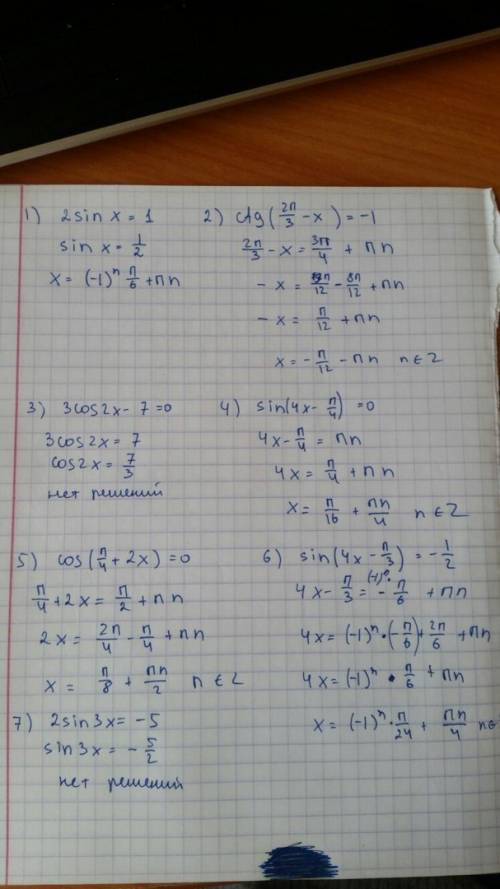 1) 2sin x = 1
sin x = 1/2
x = (-1)ⁿ π/6 + πn
2) ctg(2π/3 - x) = -1
2π/3 - x = 3π/4 + πn
- x = 9π/12 - 8π/12 + πn
- x = π/12 + πn
x = - π/12 - πn n ∈ Z
3) 3cos2x - 7 = 0
3cos2x = 7
cos2x = 7/3
нет решений
4) sin(4x - π/4) = 0
4x - π/4 = πn
4x = π/4 + πn
x = π/16 + πn/4 n ∈ Z
5) cos(π/4 + 2x) = 0
π/4 + 2x = π/2 + πn
2x = 2π/4 - π/4 + πn
x = π/8 + πn/2 n ∈ Z
6) sin(4x - π/3) = - 1/2
4x - π/3 = (-1)ⁿ· - π/6 + πn
4x = (-1)ⁿ · (- π/6) + 2π/6 + πn
4x = (-1)ⁿ · π/6 + πn
x = (-1)ⁿ · π/24 + πn/4 n ∈
7) 2sin3x = -5
sin3x = - 5/2
нет решений